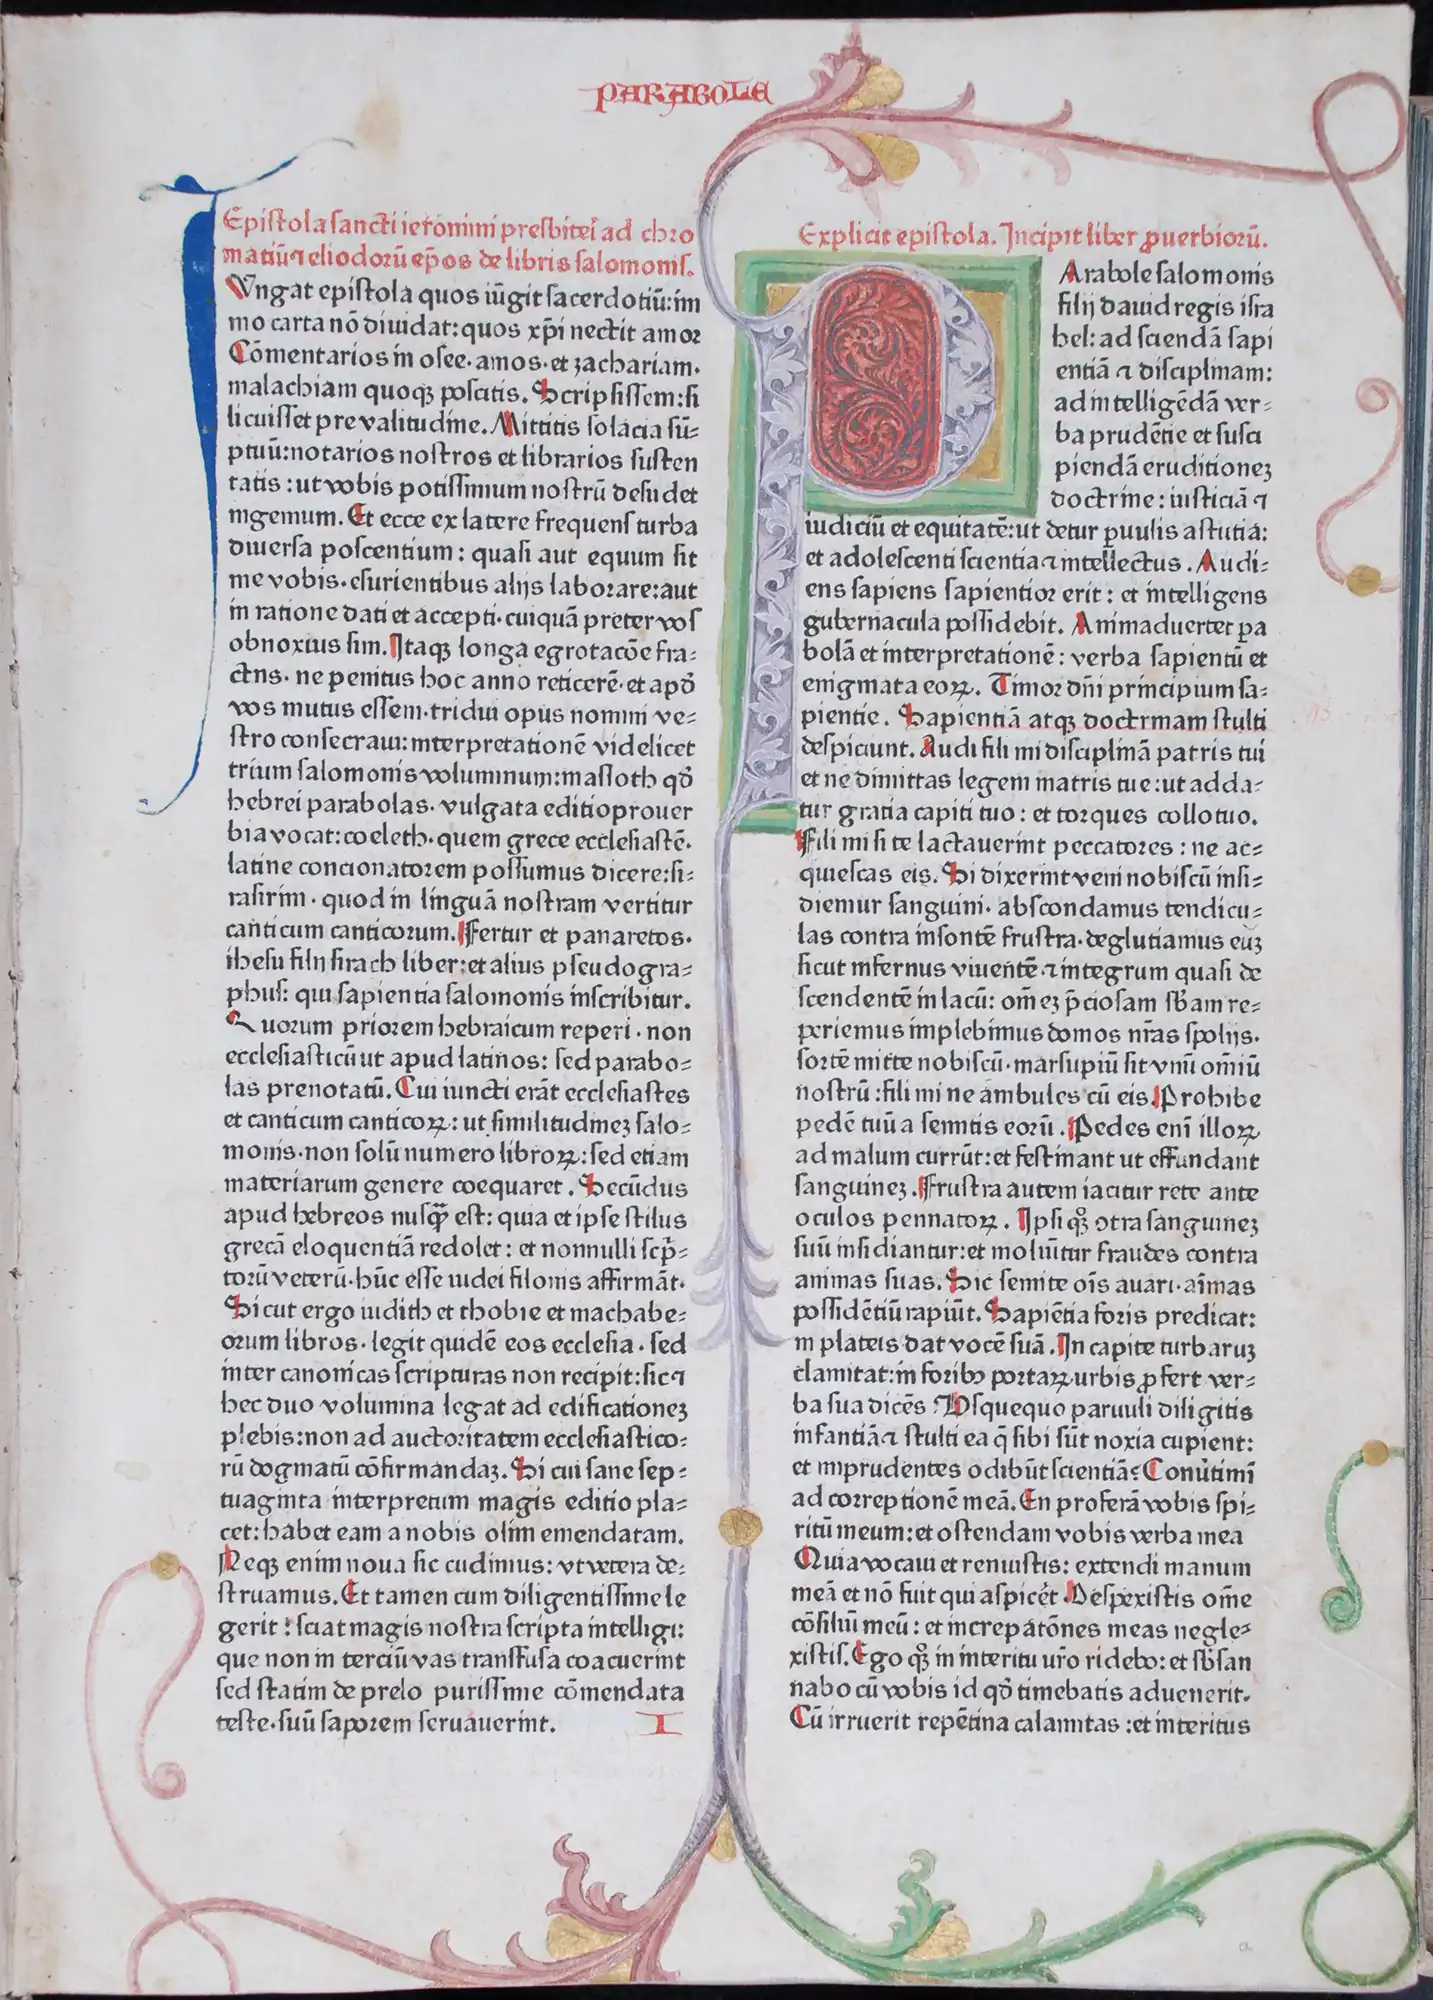 PARABOLE
Epistola sancti ieronimi presbiteri ad chro
matiū ⁊ eliodorū ep̄os de libris salomonis.
Vngat epistola quos iūgit sacerdotiū: im
mo carta nō diuidat: quos xp̄i nectit amor
Cōmentarios in osee. amos. et zachariam.
malachiam quoqꝫ poscitis. Scripsissem: si
licuisset pre valitudine. Mittitis solacia sū⸗
ptuū: notarios nostros et librarios susten
tatis: ut vobis potissimum nostrū desudet
ingenium. Et ecce ex latere frequens turba
diuersa poscentium: quasi aut equum sit
me vobis. esurientibus alijs laborare: aut
in ratione dati et accepti. cuiquā preter vos
obnoxius sim. Itaqꝫ longa egrotacōe fra⸗
ctus. ne penitus hoc anno reticerē. et apd̄
vos mutus essem. tridui opus nomini ve⸗
stro consecraui: interpretationē videlicet
trium salomonis voluminum: masloth qd̄
hebrei parabolas. vulgata editio prouer
bia vocat: coeleth. quem grece ecclesiastē.
latine concionatorem possumus dicere: si⸗
rasirim. quod in linguā nostram vertitur
canticum canticorum. Fertur et panaretos.
ihesu filij sirach liber: et alius pseudogra⸗
phus: qui sapientia salomonis inscribitur.
Quorum priorem hebraicum reperi. non
ecclesiasticū ut apud latinos: sed parabo⸗
las prenotatū. Cui iuncti erāt ecclesiastes
et canticum canticoꝝ: ut similitudineꝫ salo⸗
monis. non solū numero libroꝝ: sed etiam
materiarum genere coequaret. Secūdus
apud hebreos nusqꝫ̄ est: quia et ipse stilus
grecā eloquentiā redolet: et nonnulli scp̄⸗
torū veterū. hūc esse iudei filonis affirmāt.
Sicut ergo iudith et thobie et machabe⸗
orum libros. legit quidē eos ecclesia. sed
inter canonicas scripturas non recipit: sic ⁊
hec duo volumina legat ad edificationeꝫ
plebis: non ad auctoritatem ecclesiastico⸗
rū dogmatū cōfirmandaꝫ. Si cui sane sep⸗
tuaginta interpretum magis editio pla⸗
cet: habet eam a nobis olim emendatam.
Neqꝫ enim noua sic cudimus: vt vetera de⸗
struamus. Et tamen cum diligentissime le
gerit: sciat magis nostra scripta intelligi:
que non in terciū vas transfusa coacuerint
sed statim de prelo purissime cōmendata
teste. suū saporem seruauerint. I
Explicit epistola. Incipit liber ꝓuerbiorū.
PArabole salomonis
filij dauid regis isra
hel: ad sciendā sapi
entiā ⁊ disciplinam:
ad intelligēdā ver⸗
ba prudētie et susci
piendā eruditioneꝫ
doctrine: iusticiā ⁊
iudiciū et equitatē: ut detur ꝑuulis astutia:
et adolescenti scientia ⁊ intellectus. Audi⸗
ens sapiens sapientior erit: et intelligens
gubernacula possidebit. Animaduertet ꝑa
bolā et interpretationē: verba sapientū et
enigmata eoꝝ. Timor dn̄i principium sa⸗
pientie. Sapientiā atqꝫ doctrinam stulti
despiciunt. Audi fili mi disciplinā patris tui
et ne dimittas legem matris tue: ut adda⸗
tur gratia capiti tuo: et torques collo tuo.
Fili mi si te lactauerint peccatores: ne ac⸗
quiescas eis. Si dixerint veni nobiscū insi⸗
diemur sanguini. abscondamus tendicu⸗
las contra insontē frustra. deglutiamus euꝫ
sicut infernus viuentē. ⁊ integrum quasi de
scendentē in lacū: om̄eꝫ p̄ciosam sb̄am re⸗
periemus implebimus domos nr̄as spolijs.
sortē mitte nobiscū. marsupiū sit vnū om̄iū
nostrū: fili mi ne ambules cū eis. Prohibe
pedē tuū a semitis eorū. Pedes enī illoꝝ
ad malum currūt: et festinant ut effundant
sanguineꝫ. Frustra autem iacitur rete ante
oculos pennatoꝝ. Ipsi qꝫ ↄtra sanguineꝫ
suū insidiantur: et moliūtur fraudes contra
animas suas. Sic semite oīs auari. aīmas
possidētiū rapiūt. Sapiētia foris predicat:
in plateis dat vocē suā. In capite turbaruꝫ
clamitat: in foribꝰ portaꝝ urbis ꝓfert ver⸗
ba sua dicēs. Vsquequo paruuli diligitis
infantiā ⁊ stulti ea q̄ sibi sūt noxia cupient:
et imprudentes odibūt scientiā? Conūtimī
ad correptionē meā. En proferā vobis spi⸗
ritū meum: et ostendam vobis verba mea
Quia vocaui et renuistis: extendi manum
meā et nō fuit qui aspicēt. Despexistis om̄e
cōsiliū meū: et increpatōnes meas negle⸗
xistis. Ego qꝫ in interitu vr̄o ridebo: et sb̄san
nabo cū vobis id qd̄ timebatis aduenerit.
Cū irruerit repētina calamitas: et interitus